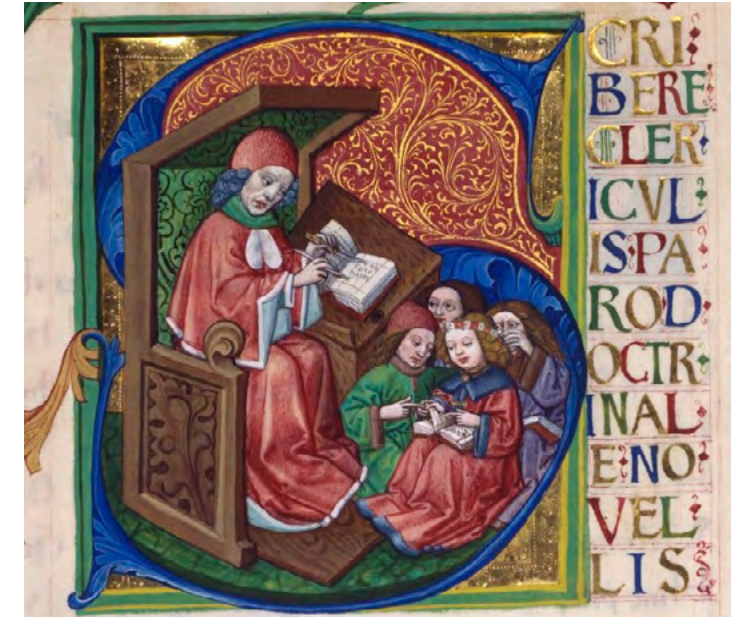 S
CRI
BERE
CLER
ICVL
IS PA
ROD
OCTR
INAL
E NO
VEL
LIS